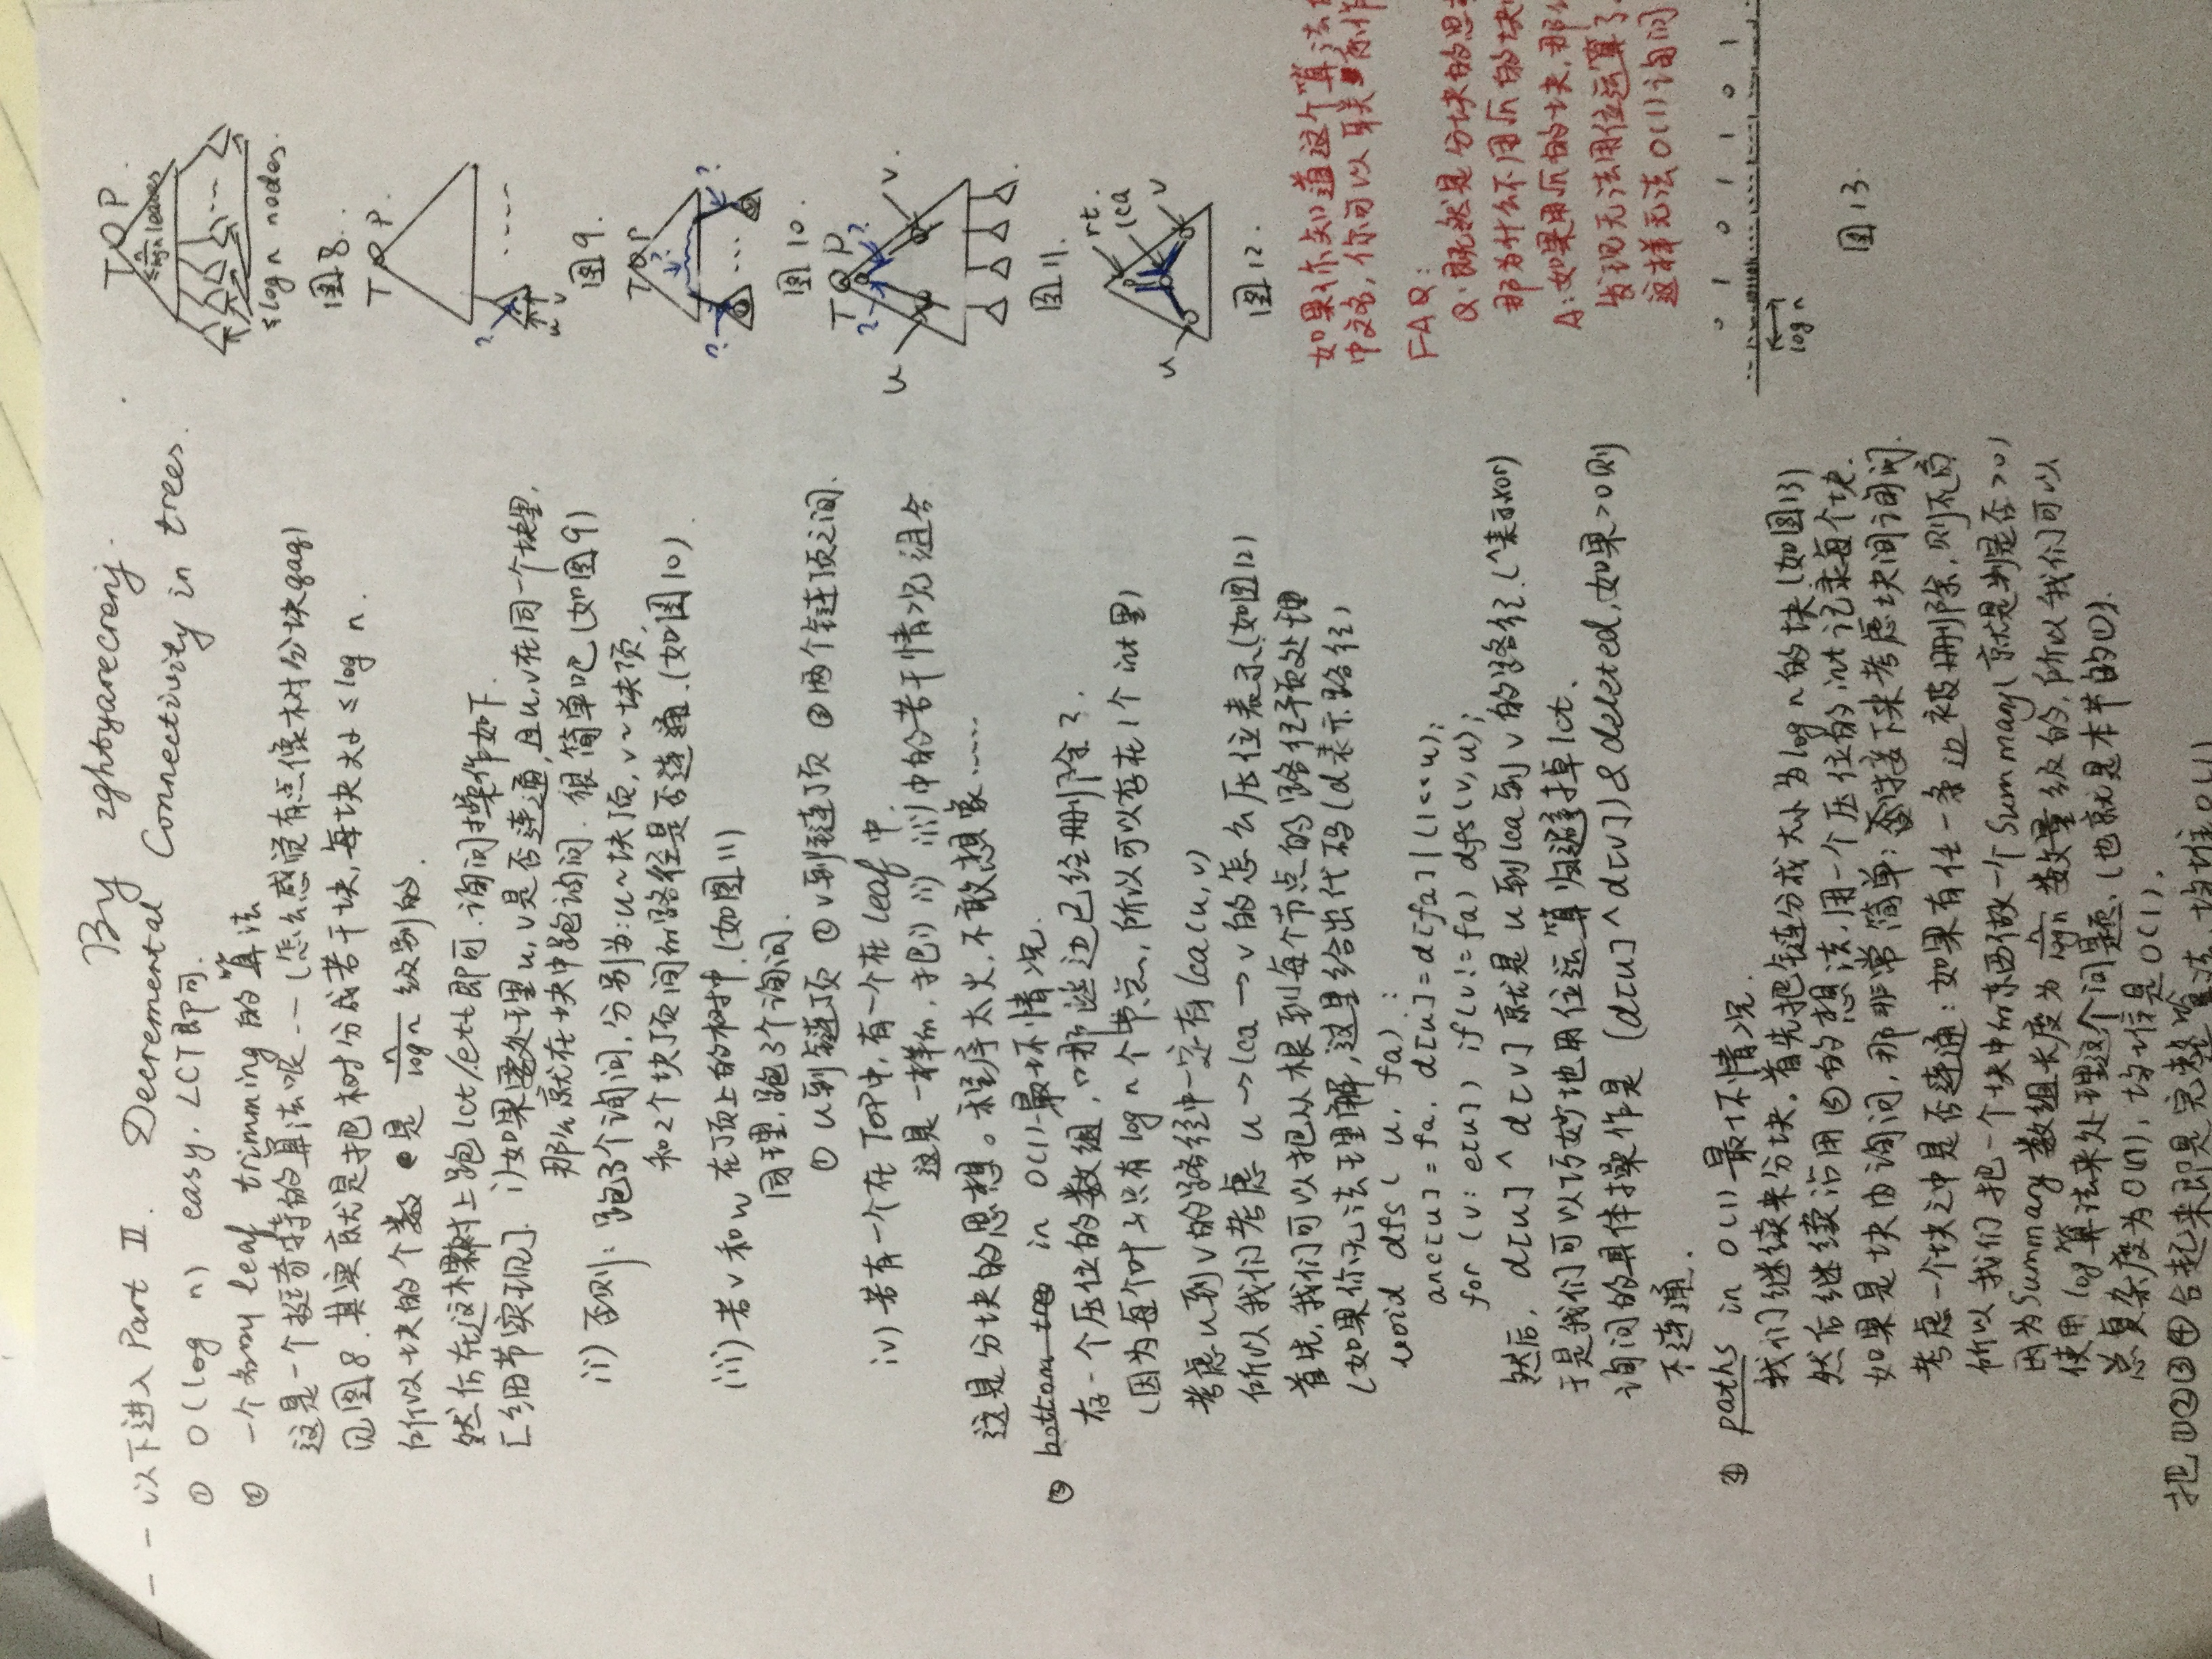 By zghtyarecrenj
---以下进入 Part II. Decremental Connectivity in trees.
① O(log n) easy. LCT即可.
② 一个叫 leaf trimming 的算法
这是一个挺奇特的算法呢…(怎么感觉有点像树分块qaq)
见图8. 其实就是把树分成若干块,每块大小≤log n.
所以块的个数是 n/log n 级别的.
然后在这棵树上跑lct/ett即可.询问操作如下.
[细节实现] i)如果要处理u,v是否连通,且u,v在同一个块里,
那么就在块中跑询问. 很简单吧(如图9)
ii)否则:跑3个询问,分别为:u~块顶,v~块顶,
和2个块顶间的路径是否连通.(如图10)
iii)若v和w在顶上的树中.(如图11)
同理,跑3个询问.
① u到链顶 ② v到链顶 ③ 两个链顶之间.
iv)若有一个在Top中,有一个在leaf中.
这是一样的,把i) ii) iii)中的若干情况组合
这是分块的思想。程序太火,不敢想象……
③ in O(1) 最坏情况.
存一个压位的数组,哪些边已经删除了.
(因为每个叶子只有log n个节点,所以可以存在1个int里)
考虑u到v的路径中一定有lca(u,v)
所以我们考虑 u→lca→v的怎么压位表示(如图12)
首先,我们可以把从根到每个节点的路径预处理
(如果你无法理解,这里给出代码(d表示路径)
void dfs(u, fa):
anc[u]=fa, d[u]=d[fa]|(1<<u);
for(v: e[u]) if(v!=fa) dfs(v,u);
然后, d[u]^d[v]就是u到lca到v的路径.(^表示xor)
于是我们可以巧妙地用位运算归避掉lct.
询问的具体操作是 (d[u]^d[v])&deleted,如果>0则
不连通.
④ paths in O(1) 最坏情况.
我们继续来分块。首先把链分成大小为log n的块(如图13)
然后继续沿用③的想法,用一个压位的int记录每个块.
如果是块内询问,那非常简单;否接下来考虑块间询问.
考虑一个块之中是否连通:如果有任一条边被删除,则不高
所以我们把一个块中的东西做一个Summary(就是判是否>0)
因为Summary数组长度为 n/log n 数量级的,所以我们可以
使用log算法来处理这个问题.(也就是本节的①).
总复杂度为O(n),均summary是O(1).
把①②③④合起来即是完整算法,均摊O(1)
T P
≤n/log n leaves
≤log n nodes.
图8.
T P.
?
u v
图9.
T P
? ? ?
图10.
T P
u ? ? v
图11.
rt. lca
u v
图12.
如果你知道这个算法
中文名,你可以联系作
FAQ:
Q:既然是分块的思
那为什么不用√n的块
A:如果用√n的块,那么
发现无法用位运算了
这样无法O(1)询问
0 1 0 1 1 0 1
log n
图13.